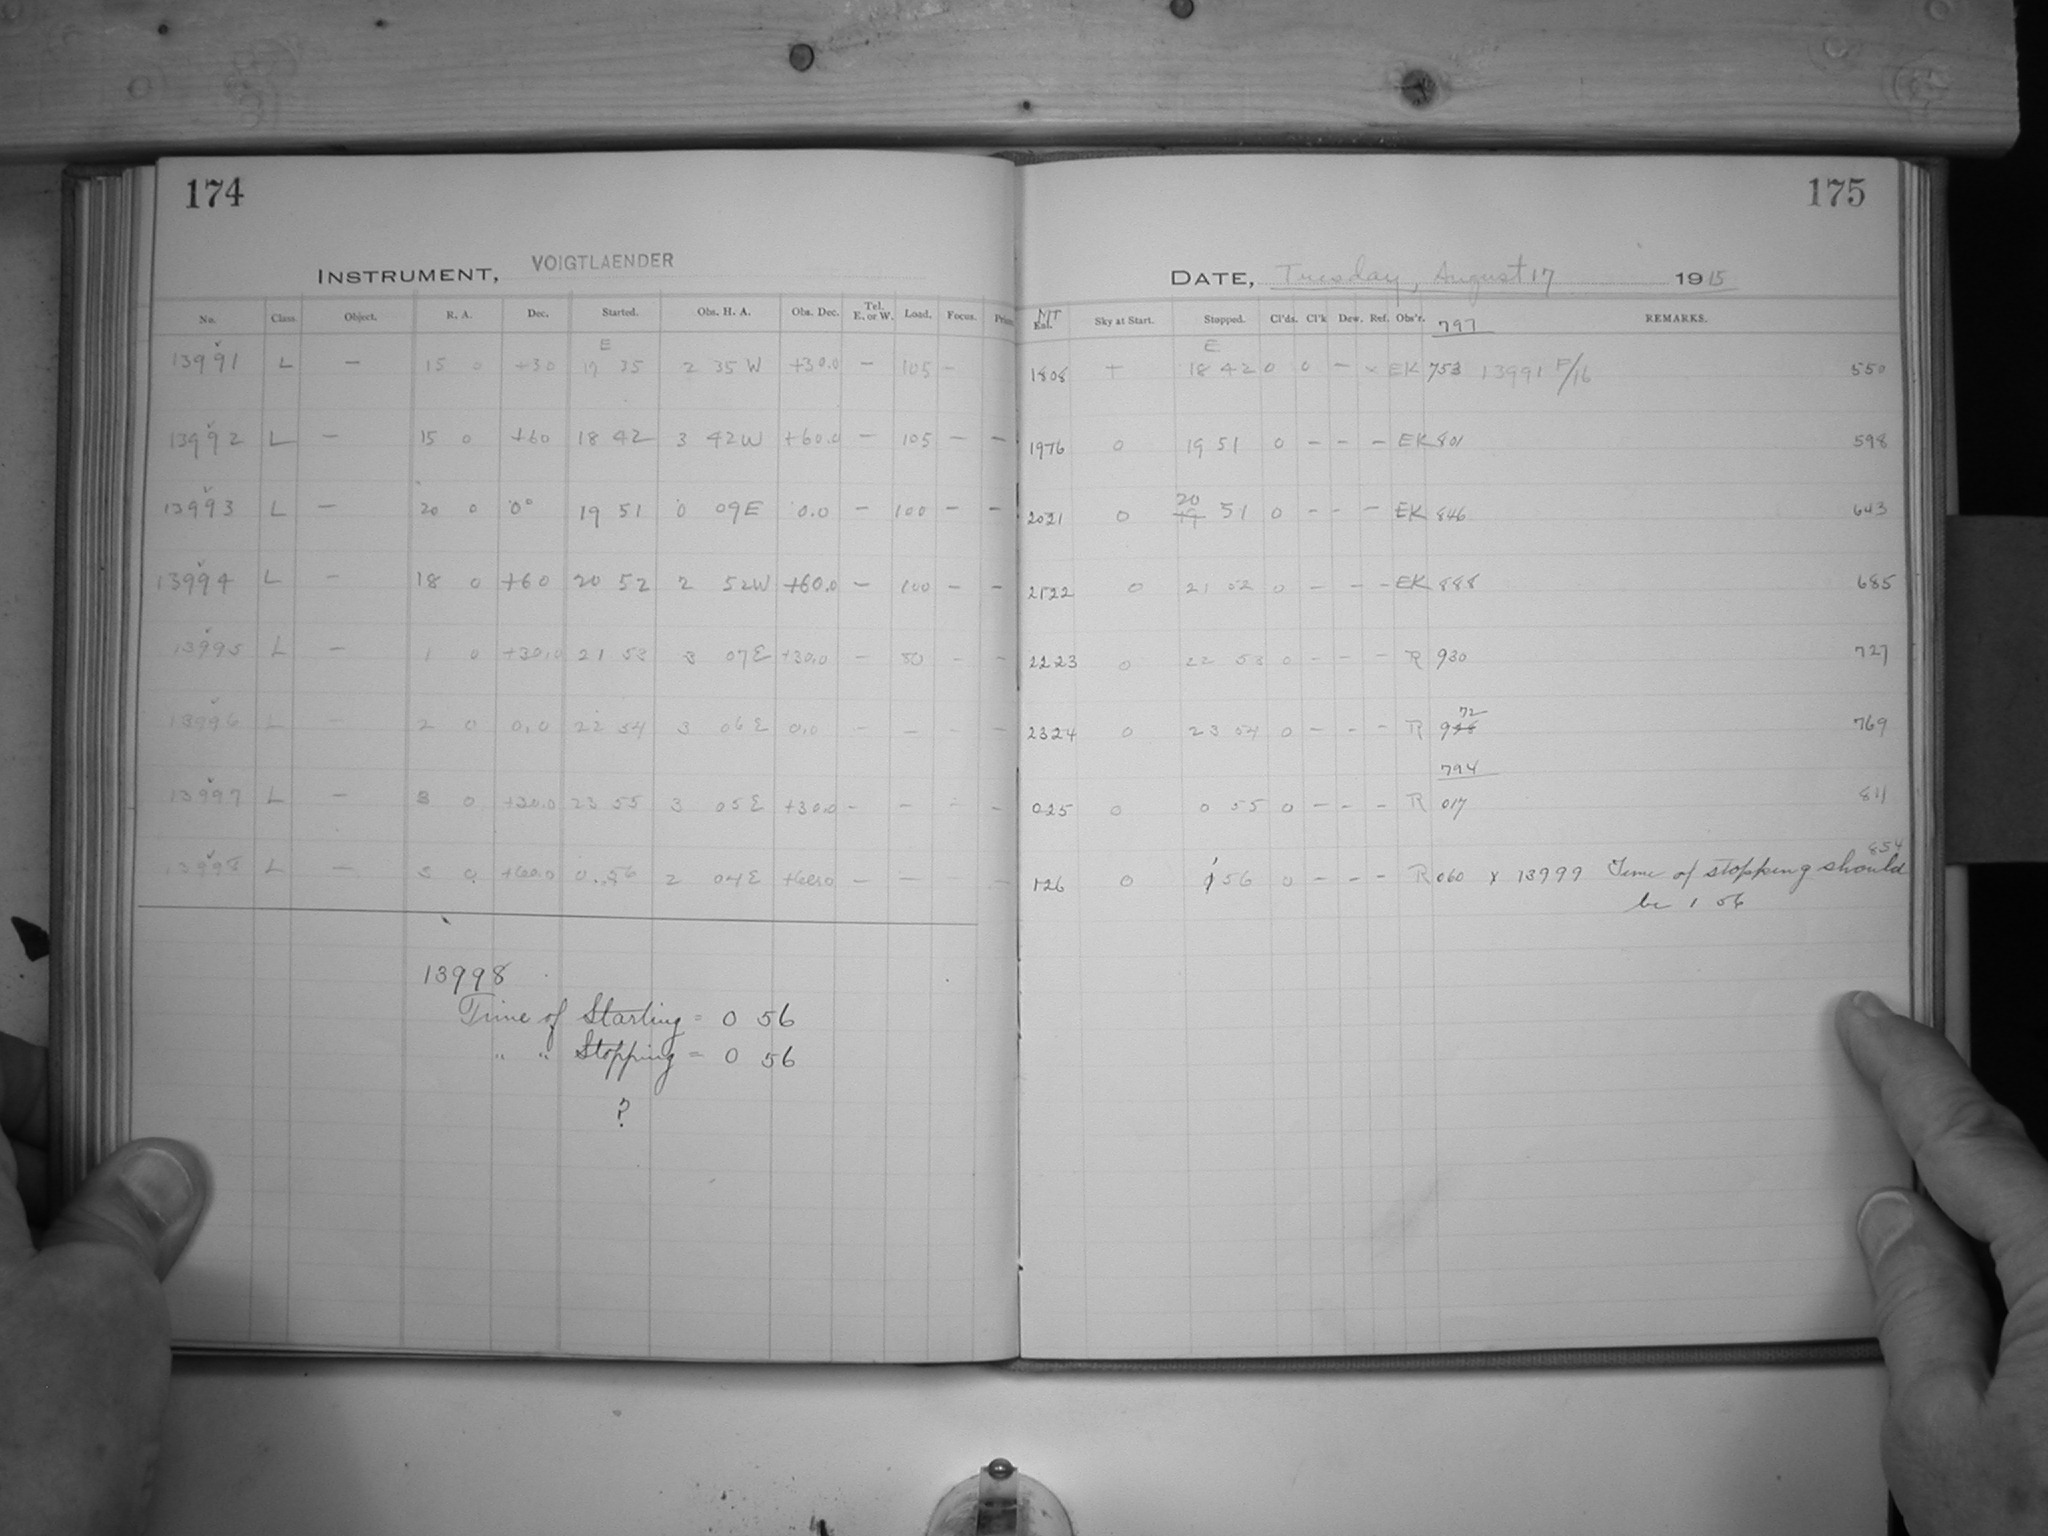 174
INSTRUMENT, VOIGTLAENDER
No. Class. Object. R. A. Dec. Started. Obs. H. A. Obs. Dec. Tel. E. or W. Load. Focus.
E
13991 L — 15 0 +30 17 35 2 35 W +30.0 — 105 —
13992 L — 15 0 +60 18 42 3 42W +60.0 — 105 — —
13993 L — 20 0 0° 19 51 0 09E 0.0 — 100 — —
13994 L — 18 0 +60 20 52 2 52W +60.0 — 100 — —
13995 L — 1 0 +30.0 21 53 3 07E +30.0 — 50 — —
13996 L — 2 0 0.0 22 54 3 06E 0.0 — — — —
13997 L — 3 0 +30.0 23 55 3 05E +30.0 — — — —
13998 L — 3 0 +60.0 0 56 2 04E +60.0 — — — —
13998
Time of Starting = 0 56
" " Stopping = 0 56
?
175
DATE, Tuesday, August 17 1915
MT
Sky at Start. Stopped. Cl'ds. Cl'k Dew. Ref. Obs'r. 797 REMARKS.
E
1808 + 18 42 0 0 — x EK 753 13991 F/16 550
1976 0 19 51 0 — — — EK 801 598
20
2021 0 19 51 0 — — — EK 846 643
2122 0 21 52 0 — — — EK 888 685
2223 0 22 53 0 — — — R 930 727
72
2324 0 23 54 0 — — — R 9 769
794
025 0 0 55 0 — — — R 017 811
854
126 0 1 56 0 — — — R 060 x 13999 Time of stopping should
be 1 56